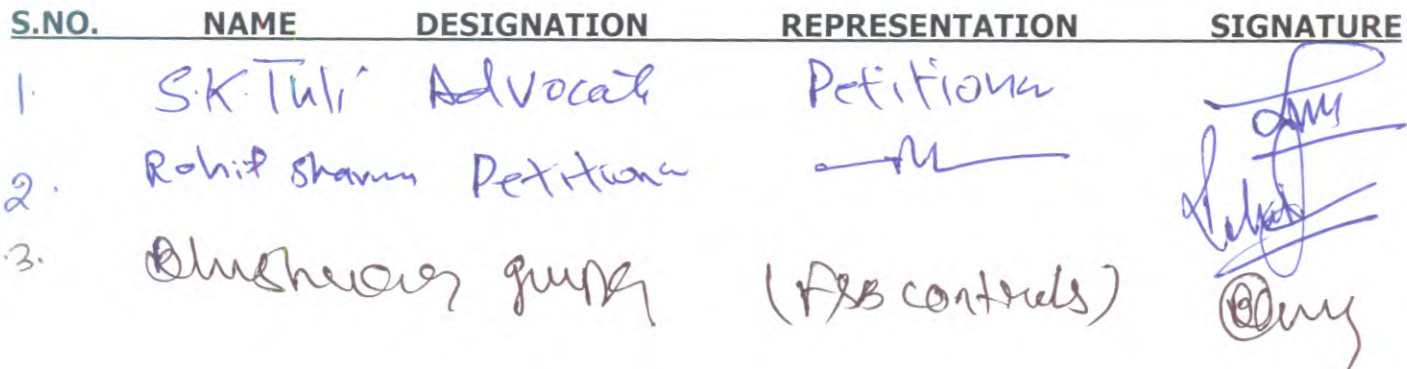 S.NO. NAME DESIGNATION REPRESENTATION SIGNATURE
1. S.K. Tuli Advocate Petitioner
2. Rohit Sharma Petitioner
3. Gupta (FSB controls)